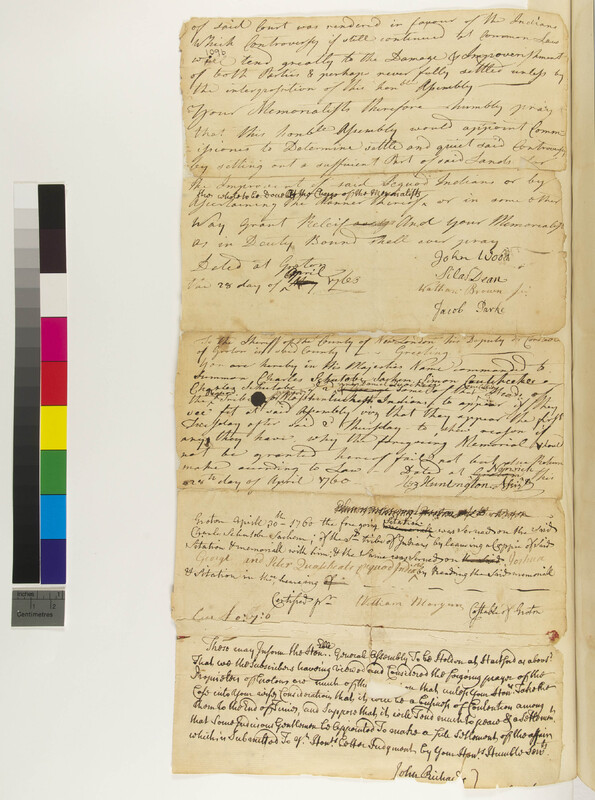 of said Court was rendered in favour of the Indians
Which Controversy if still continued at Common Law
will tend greatly to the Damage & Impoverishment
of both Parties & perhaps never fully settled unless by
the interposition of this honble Assembly
Your Memorialists therefore humbly pray
that this honble Assembly would appoint Comm
issioners to Determine settle and quiet said Controversy
by setting out a sufficient Part of said Lands for
the Improvement of said Pequod Indians or by
then whole to be done at the Charge of the Memorialists
Ascertaining the Manner thereof or in some other
Way Grant Releif And Your Memorialists
as in Duty Bound shall ever pray
Dated at Groton
April
the 28 day of 1760
John Wood
Silas Dean
Nathan Brown
Jacob Parke
To the Sheriff of the County of New London his Deputy or Constable
of Groton in said County Greeting
You are hereby in his Majesties Name Commanded to
Summon Charles Scutobe Sachem Simon
Charles Scutobe
the Tribe of Indians to appear if they
see fit at said Assembly viz that they appear the first
Tuesday after said 2d Thirsday to shew reason if
any they have why the foregoing Memorial should
not be granted hereof fail not but due Return
make according to Law Dated at Norwich this
28th day of April 1760 Hez Huntington
Groton April 30th 1760 the forgoing Sitation was served on the Said
Charls Scutobe Sachem, of the sd tribe of Indians by leaving a Coppie of said
Sitation & memorial with him; & the Same was served on Joshua
George and Peter by Reading the said memorial
& Sitation in their hearing
Certified pr William Morgan Constable of Groton
These may Inform the Honble General Assembly To be Holden at Hartford as above
That we the Subscribers haveing viewed and Considered the forgoing prayer of the
Proprietors of Groton are much of the on that unless your Honrs Take the
Case into your wise Consideration that it will be a of Contention among
them to the End of Time, and Suppose that it will Tend much to peace &
that Some Judicious Gentlemen be Appointed To make a full Settlement of the affair
which is Submitted To yr Honrs better Judgment by Your Honrs Humble Servts
John Richards
inches 1 2
Centimetres